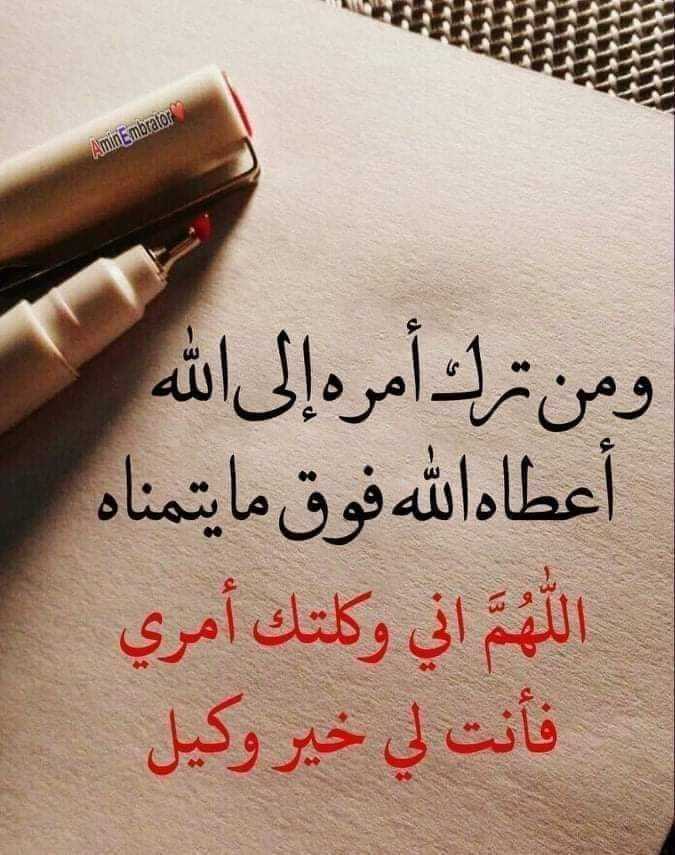 AminEmbrator
ومن ترك أمره إلى الله
أعطاه الله فوق ما يتمناه
اللّٰهُمَّ اني وكلتك أمري
فأنت لي خير وكيل